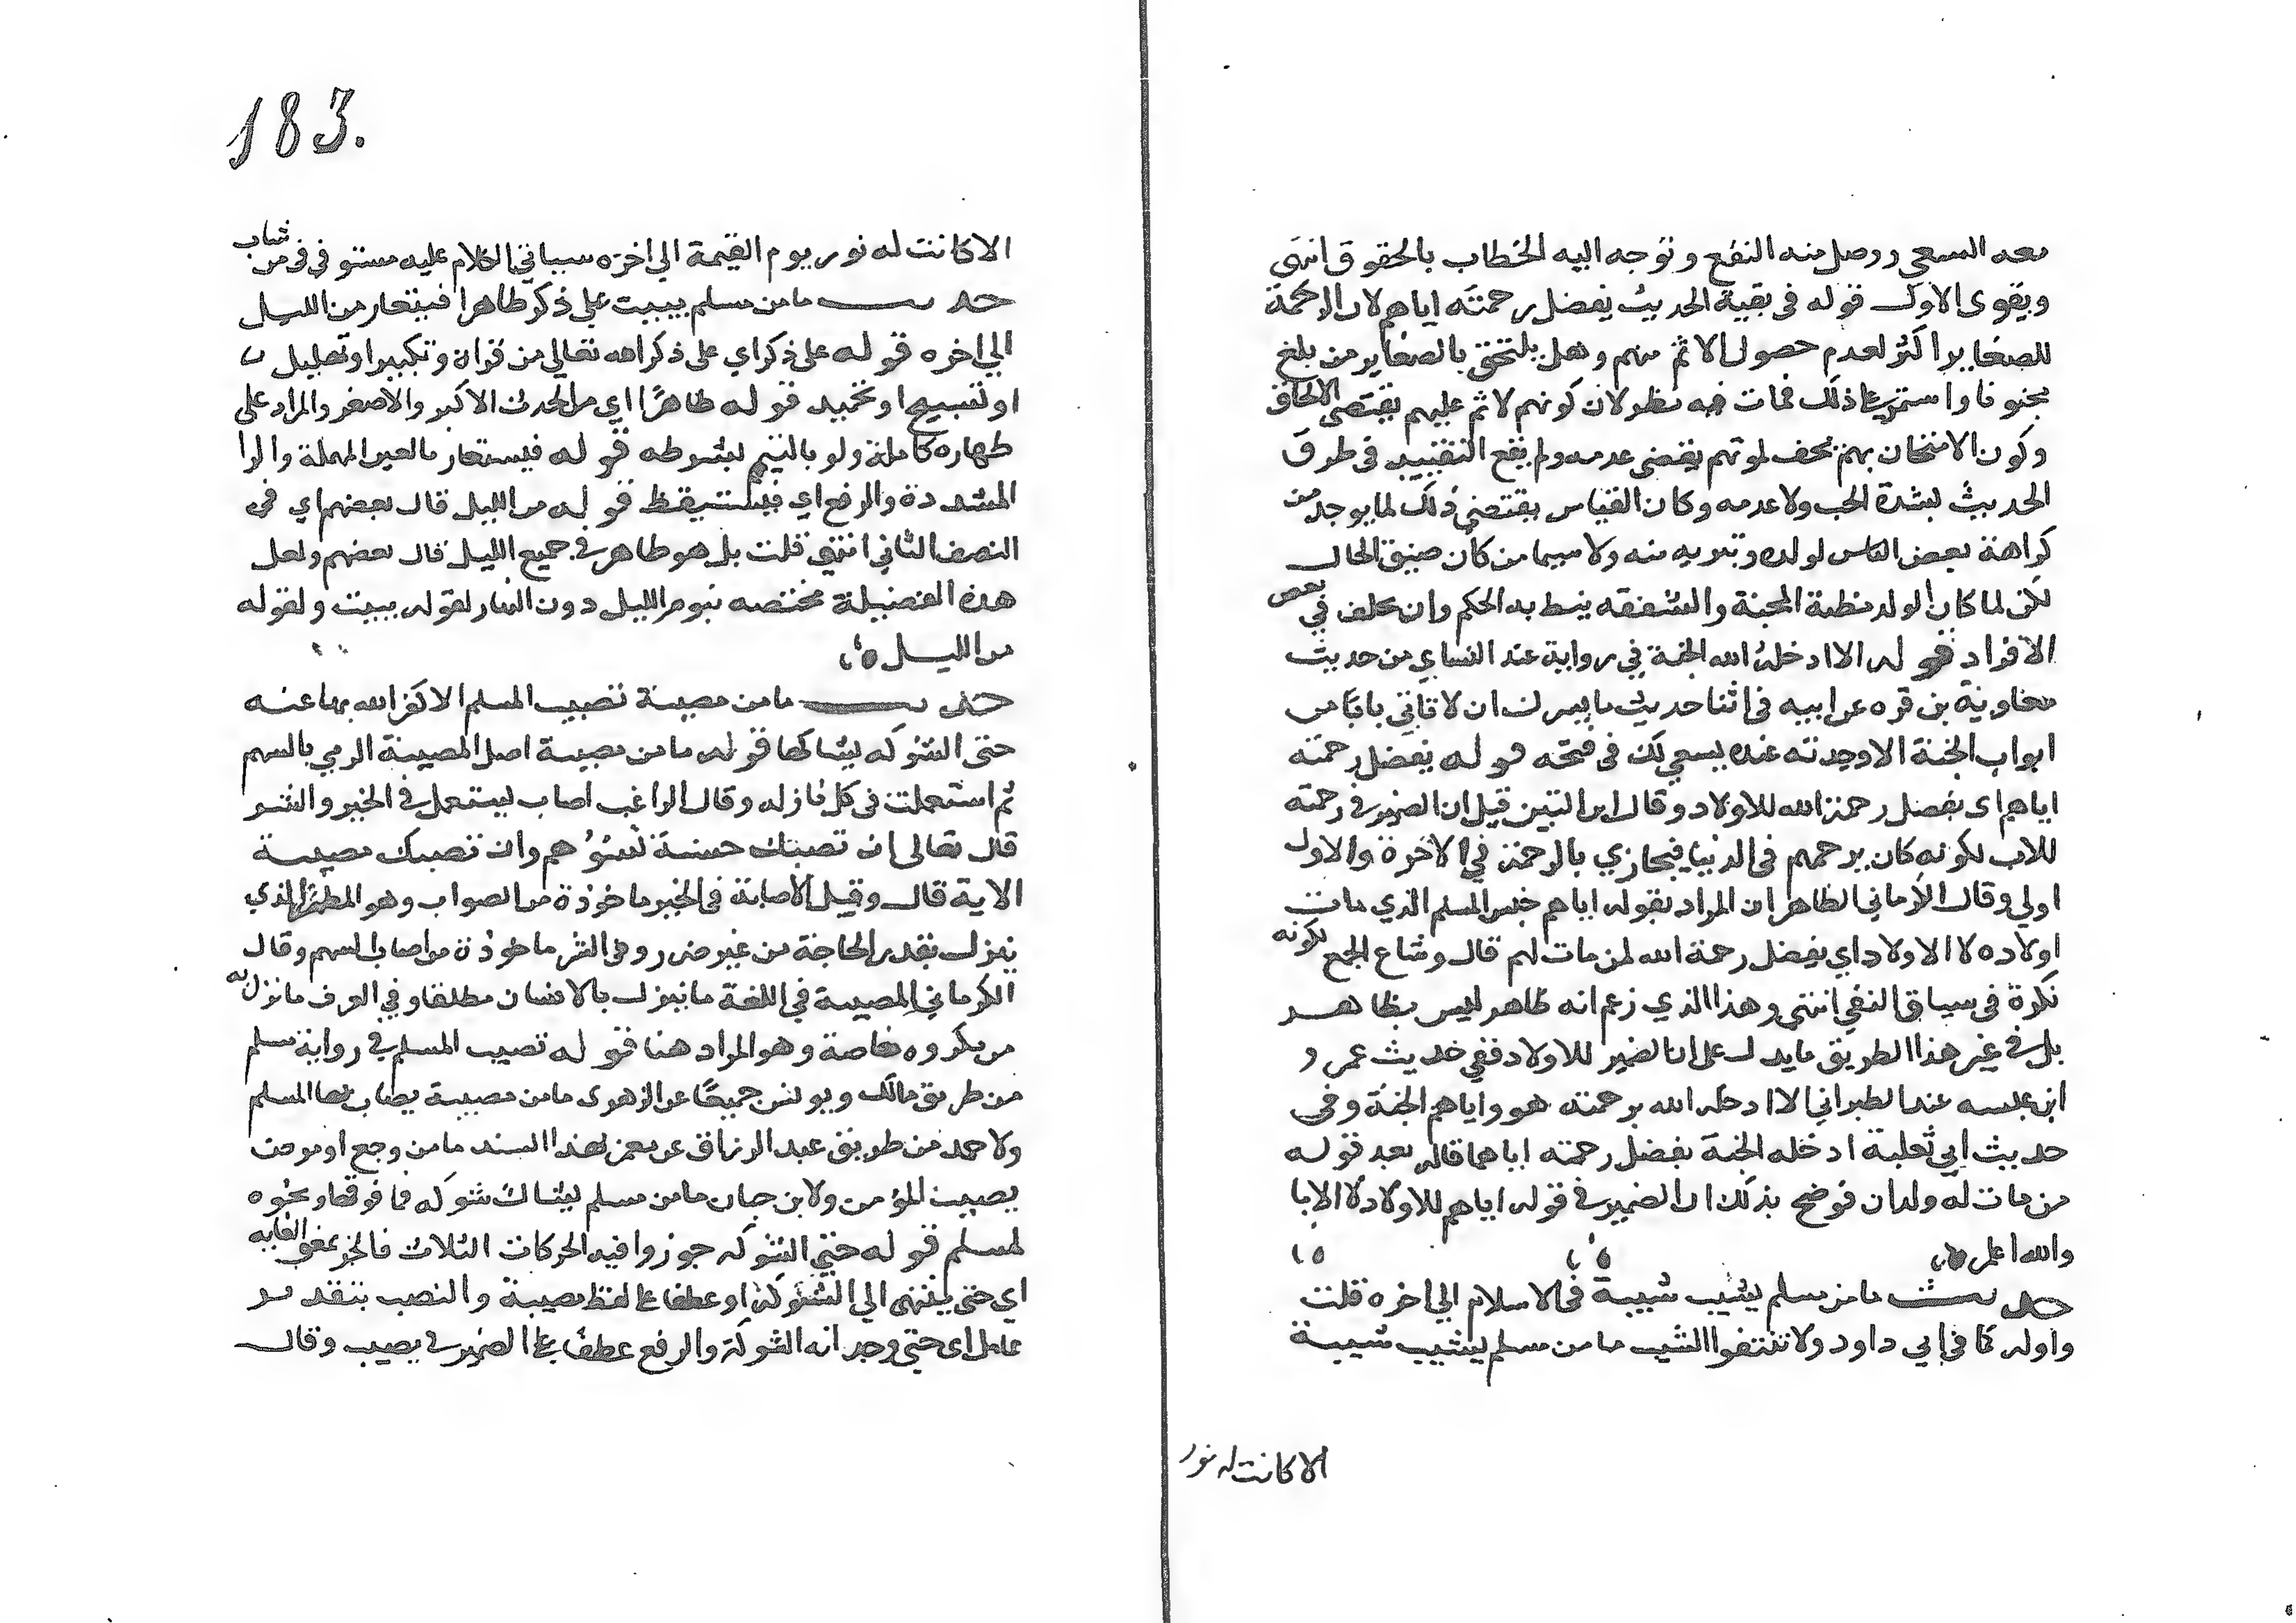 معه السعي ووصل منه النفع وتوجه اليه الخطاب بالحقوق انتهى
ويقوى الاول قوله فى بقية الحديث بفضل رحمته اياهم لان الرحمة
للصغاير اكثر لعدم حصول الاثم منهم وهل يلتحق بالصغاير من بلغ
مجنونا واستمر على ذلك فمات فيه نظر لان كونهم لا اثم عليهم يقتضى الالحاق
وكون الامتحان بهم يخف بموتهم يقتضى عدمه ولم يقع التقييد فى طرق
الحديث بشدة الحب ولا عدمه وكان القياس يقتضي ذلك لما يوجد من
كراهة بعض الناس لولده وتبريه منه ولا سيما من كان ضيق الحال
لكن لما كان الولد مظنة المحبة والشفقه ينط به الحكم وان تخلف في بعض
الافراد قوله الا ادخله الله الجنة في رواية عند النساي من حديث
معاوية بن قره عن ابيه فى اثنا حديث ما يسرك ان لا تاتي بابا من
ابواب الجنة الا وجدته عنده يسعى لك فى فتحه قوله بفضل رحمته
اياهم اى بفضل رحمة الله للاولاد وقال ابن التين قيل ان الضمير فى رحمته
للاب لكونه كان يرحمهم فى الدنيا فيجازي بالرحمة في الاخرة والاول
اولي وقال الكرماني الظاهر ان المراد بقوله اياهم جنس المسلم الذي مات
اولاده لا الاولاد اي بفضل رحمة الله لمن مات لهم قال وشاع الجمع لكونه
نكرة فى سياق النفي انتهى وهذا الذي زعم انه ظاهر ليس بظاهر
بل فى غير هذا الطريق ما يدل على ان الضمير للاولاد ففي حديث عمرو
ابن عبسه عند الطبراني الا ادخله الله برحمته هو واياهم الجنة وفى
حديث ابي ثعلبة ادخله الجنة بفضل رحمته اياهما قاله بعد قوله
من مات له ولدان فوضح بذلك ان الضمير فى قوله اياهم للاولاد لا الابا
والله اعلم
حديث ما من مسلم يشيب شيبة فى الاسلام الي اخره قلت
واوله كما في ابي داود ولا تنتفوا الشيب ما من مسلم يشيب شيبة
الا كانت له نور
183.
الا كانت له نور يوم القيمة الي اخره سياتي الكلام عليه مستوفى في من شاب
حديث ما من مسلم يبيت على ذكر طاهرا فيتعار من الليل
الي اخره قوله على ذكر اي على ذكر الله تعالي من قران وتكبيرا وتهليل
او تسبيح او تحميد قوله طاهرًا اي من الحدث الاكبر والاصغر والمراد على
طهاره كاملة ولو بالتيمم بشرطه قوله فيستعار بالعين المهملة والرا
المشددة والرفع اي فيستيقظ قوله من الليل قال بعضهم اي فى
النصف الثاني انتهى قلت بل هو ظاهر فى جميع الليل قال بعضهم ولعل
هذه الفضيلة مختصه بنوم الليل دون النهار لقوله يبيت ولقوله
من الليل
حديث ما من مصيبة تصيب المسلم الا كفر الله بها عنه
حتى الشوكه يشاكها قوله ما من مصيبة اصل المصيبة الرمي بالسهم
ثم استعملت فى كل نازله وقال الراغب اصاب يستعمل فى الخير والشر
قال تعالى ان تصبك حسنة تسؤهم وان تصبك مصيبة
الاية قال وقيل الاصابة فى الخير ماخوذة من الصواب وهو المطر الذي
ينزل بقدر الحاجة من غير ضرر وفى الشر ماخوذة من اصاب السهم وقال
الكرماني المصيبة في اللغة ما ينزل بالانسان مطلقا وفي العرف ما نزل به
من مكروه خاصة وهو المراد هنا قوله تصيب المسلم فى رواية مسلم
من طريق مالك ويونس جميعًا عن الزهرى ما من مصيبة يصاب بها المسلم
ولاحمد من طريق عبد الرزاق عن معمر بهذا السند ما من وجع او مرض
يصيب المؤمن ولابن حبان ما من مسلم يشاك شوكه فما فوقها ونحوه
لمسلم قوله حتي الشوكه جوزوا فيه الحركات الثلاث فالجر بمعنى الغايه
اي حتى ينتهى الي الشوكة او عطفا على لفظ مصيبة والنصب بتقدير
عامل اى حتى وجدانه الشوكة والرفع عطف على الضمير فى يصيب وقال